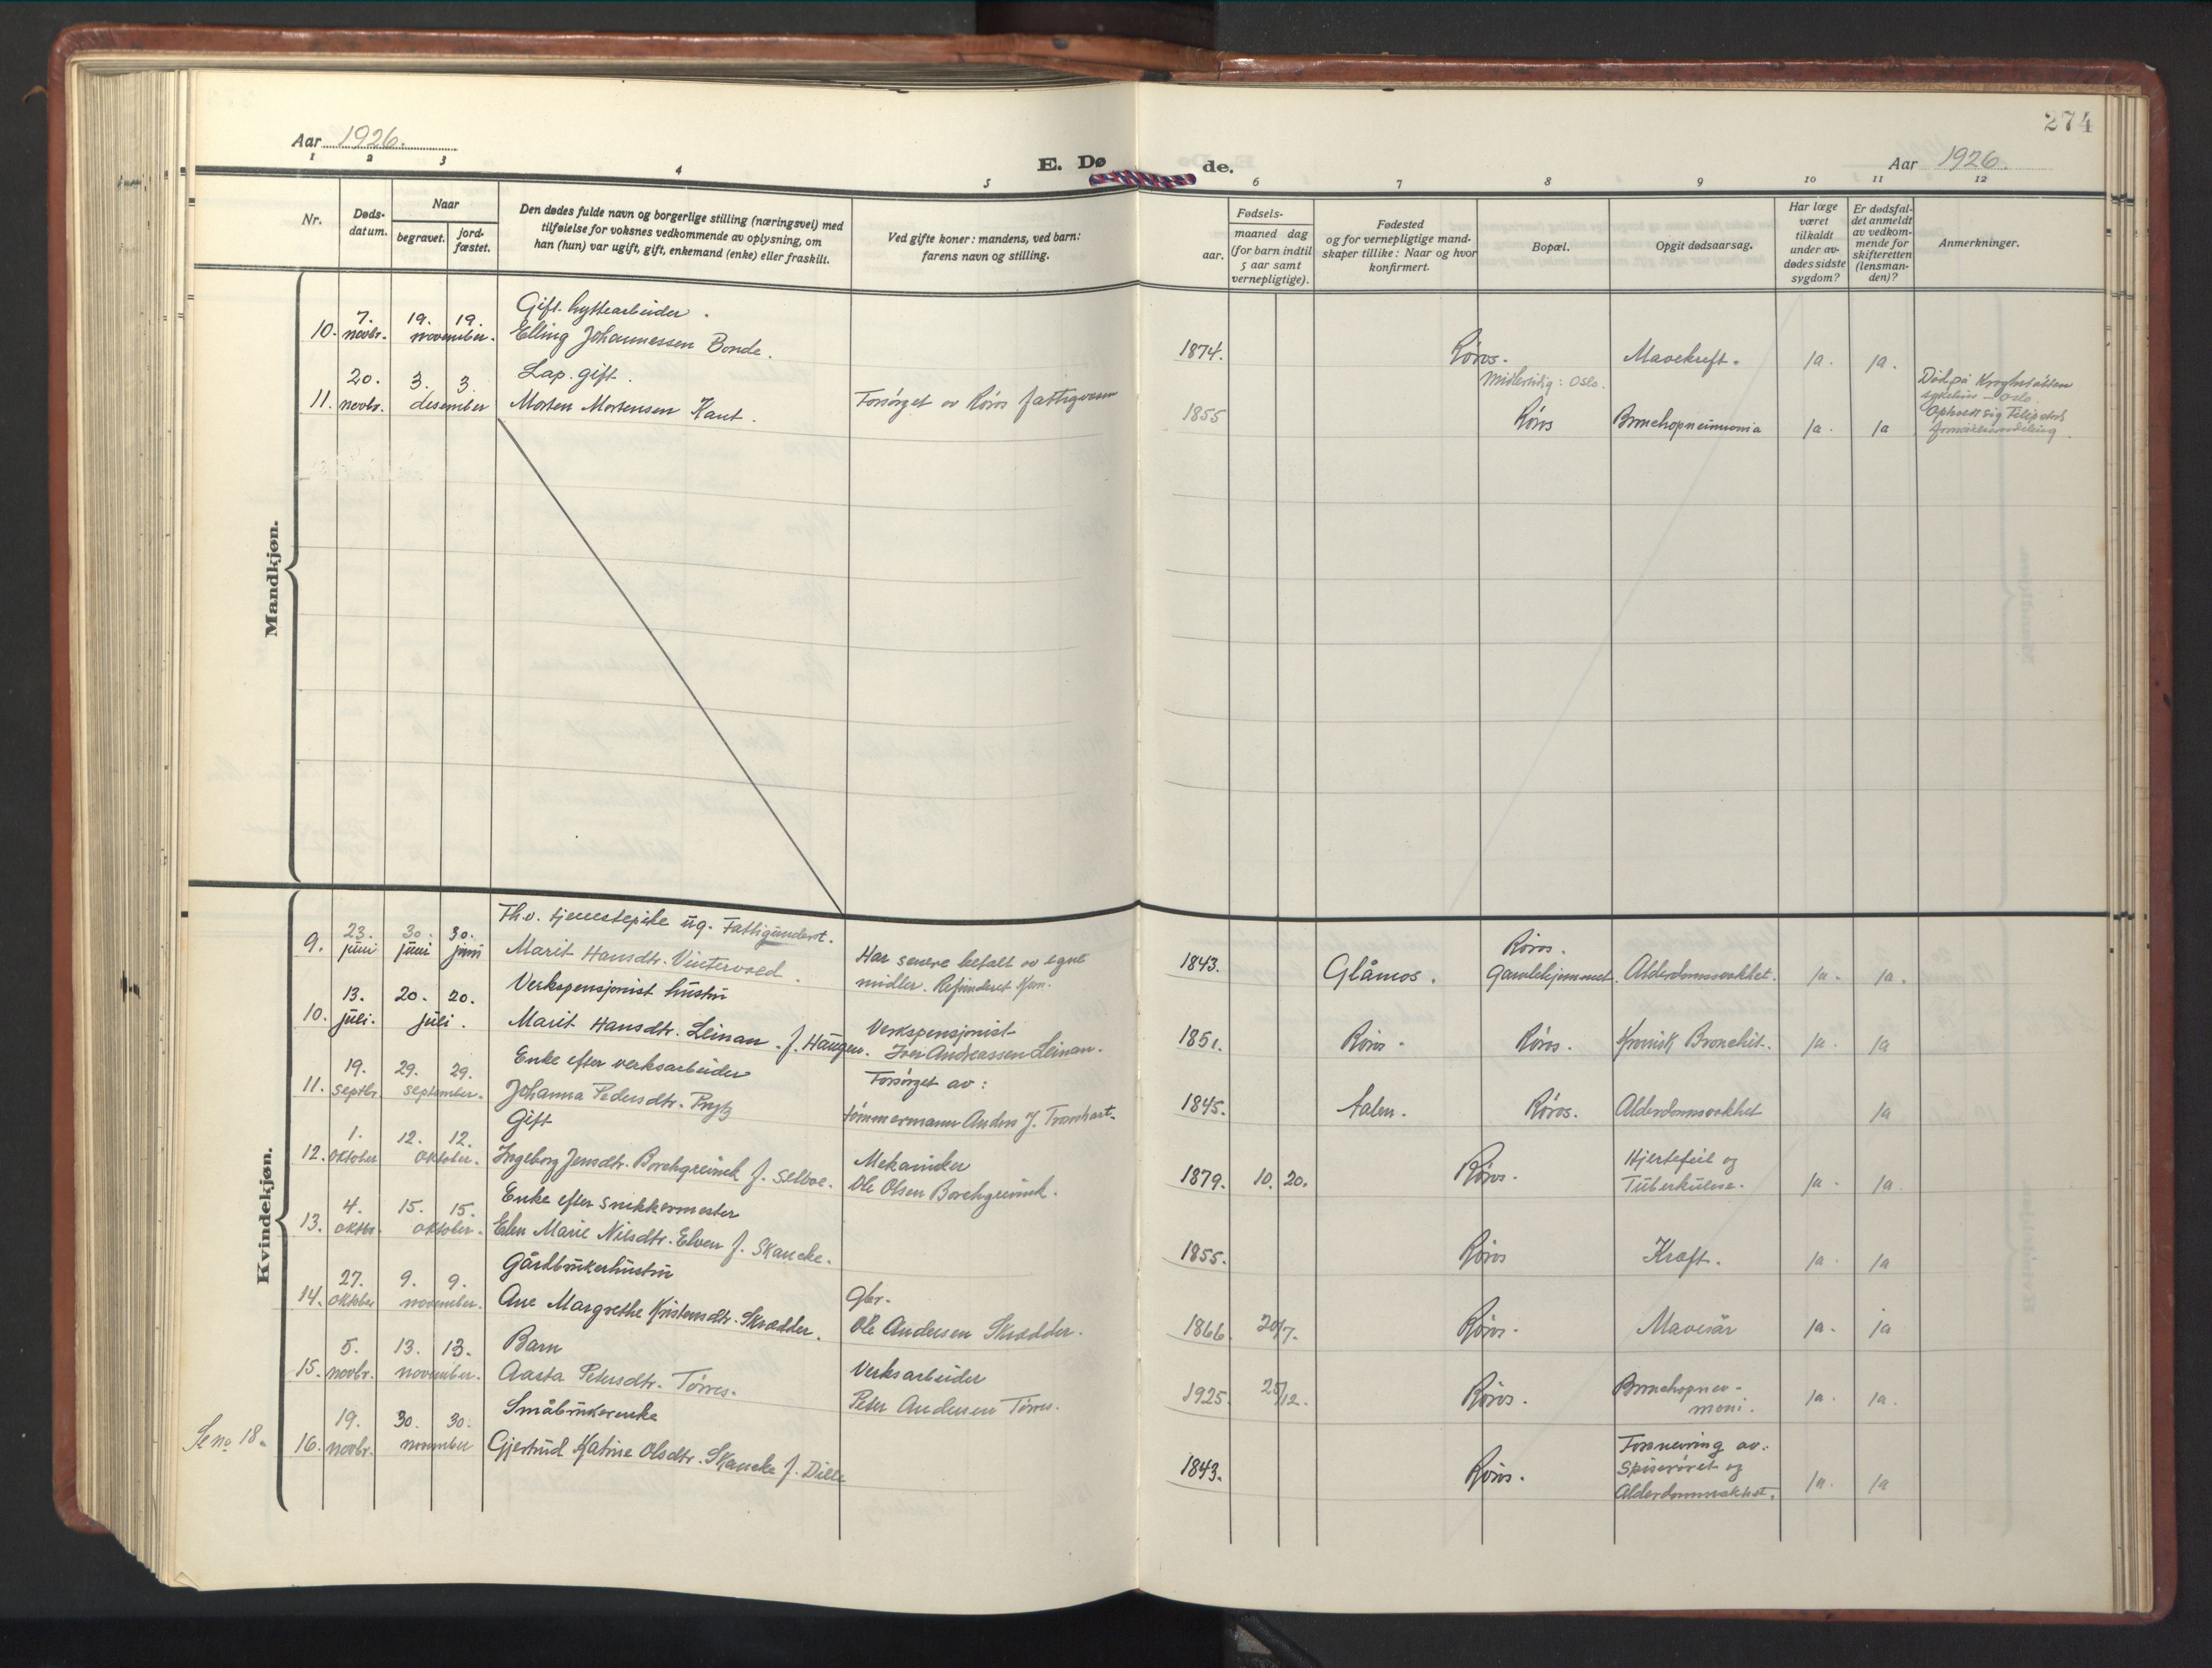 274
Aar 1926.
E. Døde.
Aar 1926.
1 2 3 4 5 6 7 8 9 10 11 12
Nr.
Døds-
datum.
Naar
begravet.
jord-
fæstet.
Den dødes fulde navn og borgerlige stilling (næringsvei) med
tilføielse for voksnes vedkommende av oplysning, om
han (hun) var ugift, gift, enkemand (enke) eller fraskilt.
Ved gifte koner: mandens, ved barn:
farens navn og stilling.
Fødsels-
aar.
maaned dag
(for barn indtil
5 aar samt
vernepligtige).
Fødested
og for vernepligtige mand-
skaper tillike: Naar og hvor
konfirmert.
Bopæl.
Opgit dødsaarsag.
Har læge
været
tilkaldt
under av-
dødes sidste
sygdom?
Er dødsfal-
det anmeldt
av vedkom-
mende for
skifteretten
(lensman-
den)?
Anmerkninger.
Mandkjøn.
7. 19. 19. Gift. hyttearbeider.
10. novbr. november. Elling Johannessen Bonde. 1874. Røros. Mavekreft. ja. ja.
20. 3. 3. Lap. gift. Midlertidig: Oslo.
11. novbr. desember Morten Mortensen Kant. Forsørget av Røros fattigvesen 1855 Røros Bronchopneumonia ja. ja
Død på Krogstøtten
sykehus - Oslo.
Opholdt sig
Kvindekjøn.
Fh.v. tjenestepike ug. Fattigunderst.
23. 30. 30.
9. juni juni juni Marit Hansdtr. Vintervold. Har senere betalt av egne
midler. Refunderet Kom. 1843. Glåmos. Røros.
Gamlehjemmet. Alderdomssvakhet. ja. ja.
13. 20. 20. Verkspensjonist hustru
10. juli. juli. Marit Hansdtr. Leinan. f. Haugen. Verkspensjonist
Iver Andreassen Leinan. 1851. Røros. Røros. Kronisk Bronchit. ja. ja
19. 29. 29. Enke efter verksarbeider
11. septbr. september. Johanna Pedersdtr. Prytz Forsørget av:
tømmermann Anders J. Tronshart. 1845. Aalen. Røros. Alderdomssvakhet ja
1. 12. 12. Gift
12. oktober oktober. Ingeborg Jensdtr. Borchgrevink f. Selboe. Mekaniker
Ole Olsen Borchgrevink. 1879. 10. 20. Røros. Hjertefeil og
Tuberkulose. ja. ja.
4. 15. 15. Enke efter snikkermester
13. oktbr. oktober. Elen Marie Nilsdtr. Elven f. Skancke. 1855. Røros Kræft. ja. ja
27. 9. 9. Gårdbrukerhustru
14. oktober november. Ane Margrethe Kristensdtr. Skrædder. Gbr.
Ole Andersen Skrædder. 1866. 20/7. Røros. Mavesår ja. ja
5. 13. 13. Barn
15. novbr. november. Aasta Petersdtr. Tørres. Verksarbeider
Peter Andersen Tørres. 1925. 25/12. Røros. Bronchopnev-
moni. ja. ja.
19. 30. 30. Småbrukerenke
Se no 18.
16. novbr. november Gjertrud Katrine Olsdtr. Skancke f. Dille 1843. Røros. Forsnevring av:
Spiserøret og
Alderdomssvakhet. ja. ja